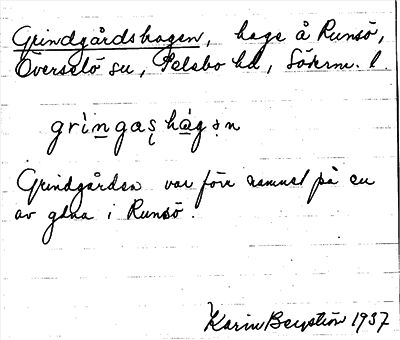 Grindgårdshagen, hage å Runsö,
Överselö sn, Selebo hd, Söderm. l.
grìngas hágən
Grindgården var förr namnet på en
av gdna i Runsö.
Karin Bergström 1937